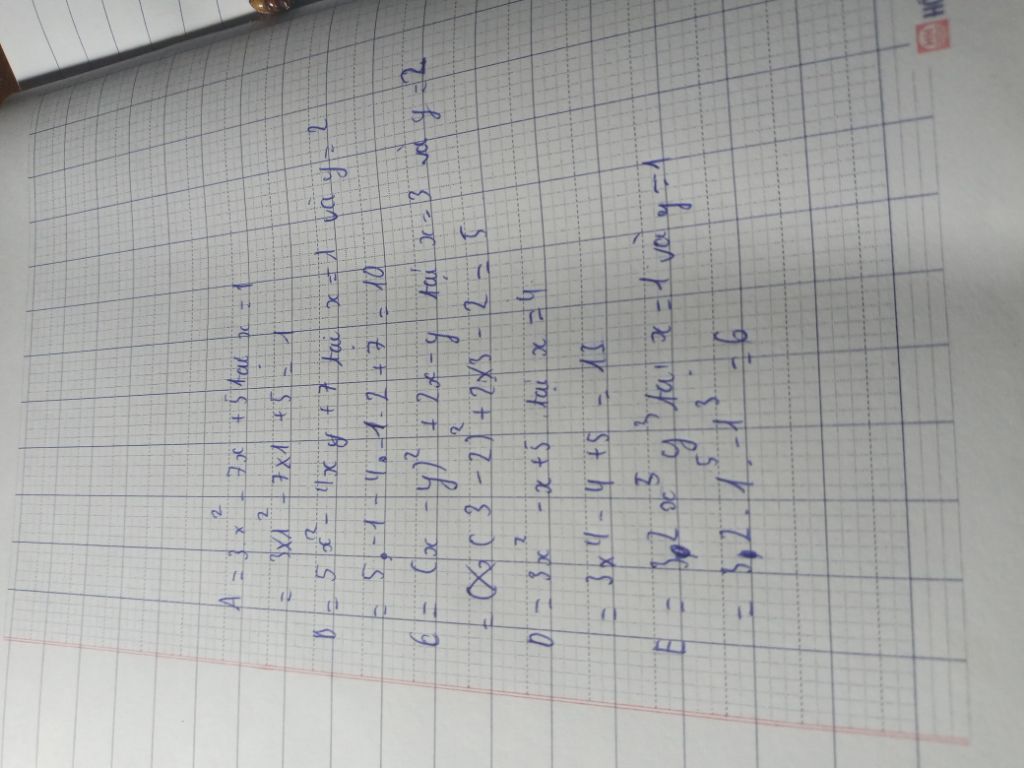 A = 3x² - 7x + 5 tại x = 1
= 3x1² - 7x1 + 5 = 1
B = 5x² - 4xy + 7 tại x = 1 và y = 2
= 5.-1 - 4.-1.2 + 7 = 10
C = (x - y)² + 2x - y tại x = 3 và y = 2
= (3 - 2)² + 2x3 - 2 = 5
D = 3x² - x + 5 tại x = 4
= 3x4 - 4 + 5 = 13
E = 3.2 x⁵ y³ tại x = 1 và y = -1
= 3.2.1⁵.-1³ = 6
HO